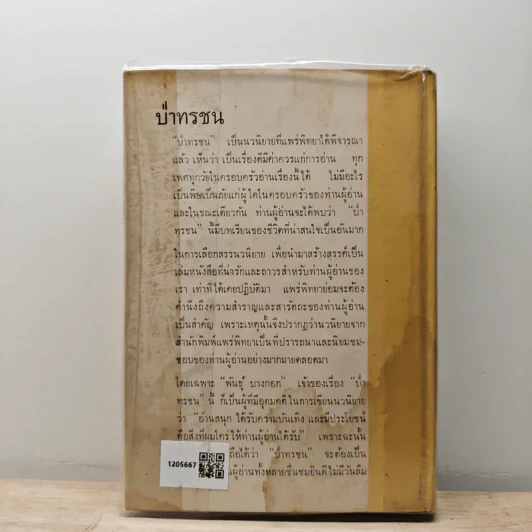 บ่าทรชน
"บ่ำทรชน" เป็นนวนิยายที่แพร่พิทยาได้พิจารณา
แล้ว เห็นว่า เป็นเรื่องดีมีค่าควรแก่การอ่าน ทุก
เพศทุกวัยในครอบครัวอ่านเรื่องนี้ได้ ไม่มีอะไร
เป็นพิษเป็นภัยแก่ผู้ใดในครอบครัวของท่านผู้อ่าน
และในขณะเดียวกัน ท่านผู้อ่านจะได้พบว่า "บ่ำ
ทรชน" นี้มีบทเรียนของชีวิตที่น่าสนใจเป็นอันมาก
ในการเลือกสรรนวนิยาย เพื่อนำมาสร้างสรรค์เป็น
เล่มหนังสือที่น่ารักและถาวรสำหรับท่านผู้อ่านของ
เรา เท่าที่ได้เคยปฏิบัติมา แพร่พิทยาย่อมจะต้อง
คำนึงถึงความสำราญและสารัตถะของท่านผู้อ่าน
เป็นสำคัญ เพราะเหตุนั้นจึงปรากฏว่านวนิยายจาก
สำนักพิมพ์แพร่พิทยาเป็นที่ปรารถนาและนิยมชม-
ชอบของท่านผู้อ่านอย่างมากมายตลอดมา
โดยเฉพาะ "พันธุ์ บางกอก" เจ้าของเรื่อง "บ่ำ
ทรชน" นี้ ก็เป็นผู้ที่มีอุดมคติในการเขียนนวนิยาย
ว่า "อ่านสนุก ได้รับความบันเทิง และมีประโยชน์
คือสิ่งที่ผมใคร่ให้ท่านผู้อ่านได้รับ" เพราะฉะนั้น
ถือได้ว่า "บ่ำทรชน" จะต้องเป็น
ผู้อ่านทั้งหลายชื่นชมยินดีไม่มีวันลืม
1205667